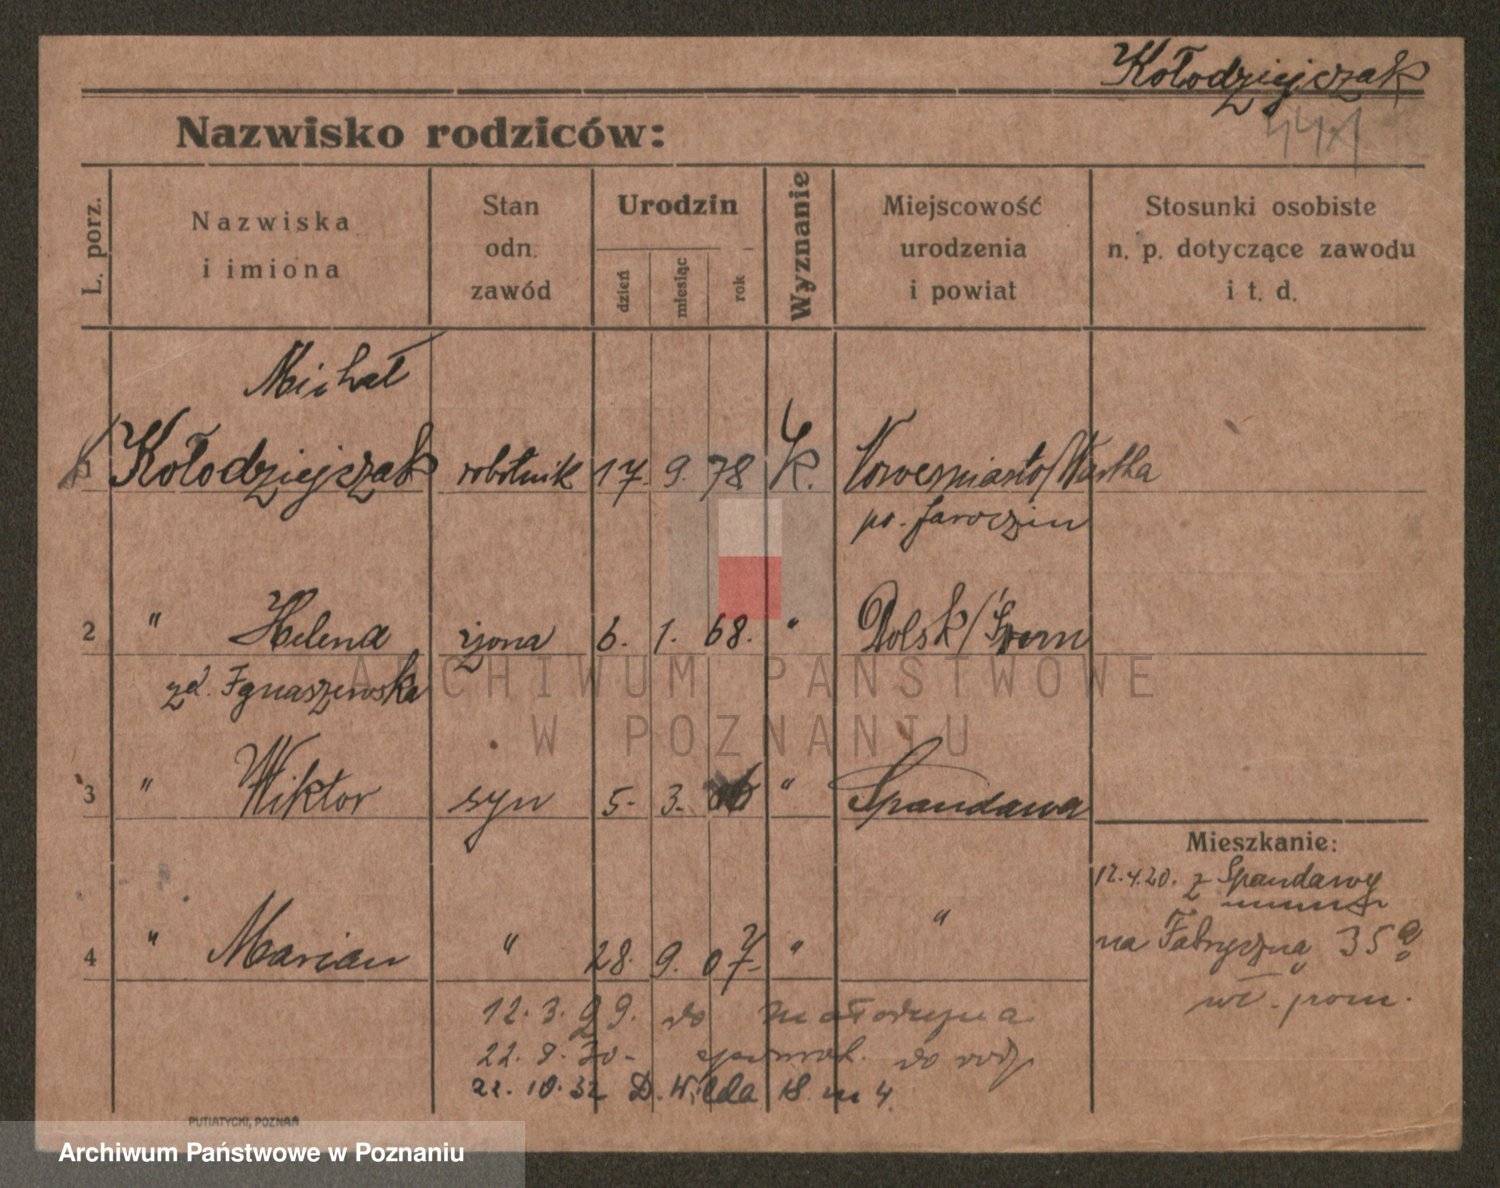 Kołodziejczak
Nazwisko rodziców:
L. porz.
Nazwiska
i imiona
Stan
odn.
zawód
Urodzin
dzień
miesiąc
rok
Wyznanie
Miejscowość
urodzenia
i powiat
Stosunki osobiste
n. p. dotyczące zawodu
i t. d.
Michał
Kołodziejczak robotnik 17. 9. 78 k. Nowemiasto/Wartha
po. Jarocin
2 " Helena żona 6. 1. 68. " Dolsk/Śrem
zd. Ignaszewska
3 " Wiktor syn 5. 3. 06 " Spandawa
Mieszkanie:
12.4.20. z Spandawy
na Fabryczną 35a
wł. prom.
4 " Marian " 28. 9. 07. " "
12. 3. 29. do
22. 8. 30- do rodz
22. 10. 32 D. Wilda 18. m 4.
PUTIATYCKI, POZNAŃ
ARCHIWUM PAŃSTWOWE
W POZNANIU
Archiwum Państwowe w Poznaniu